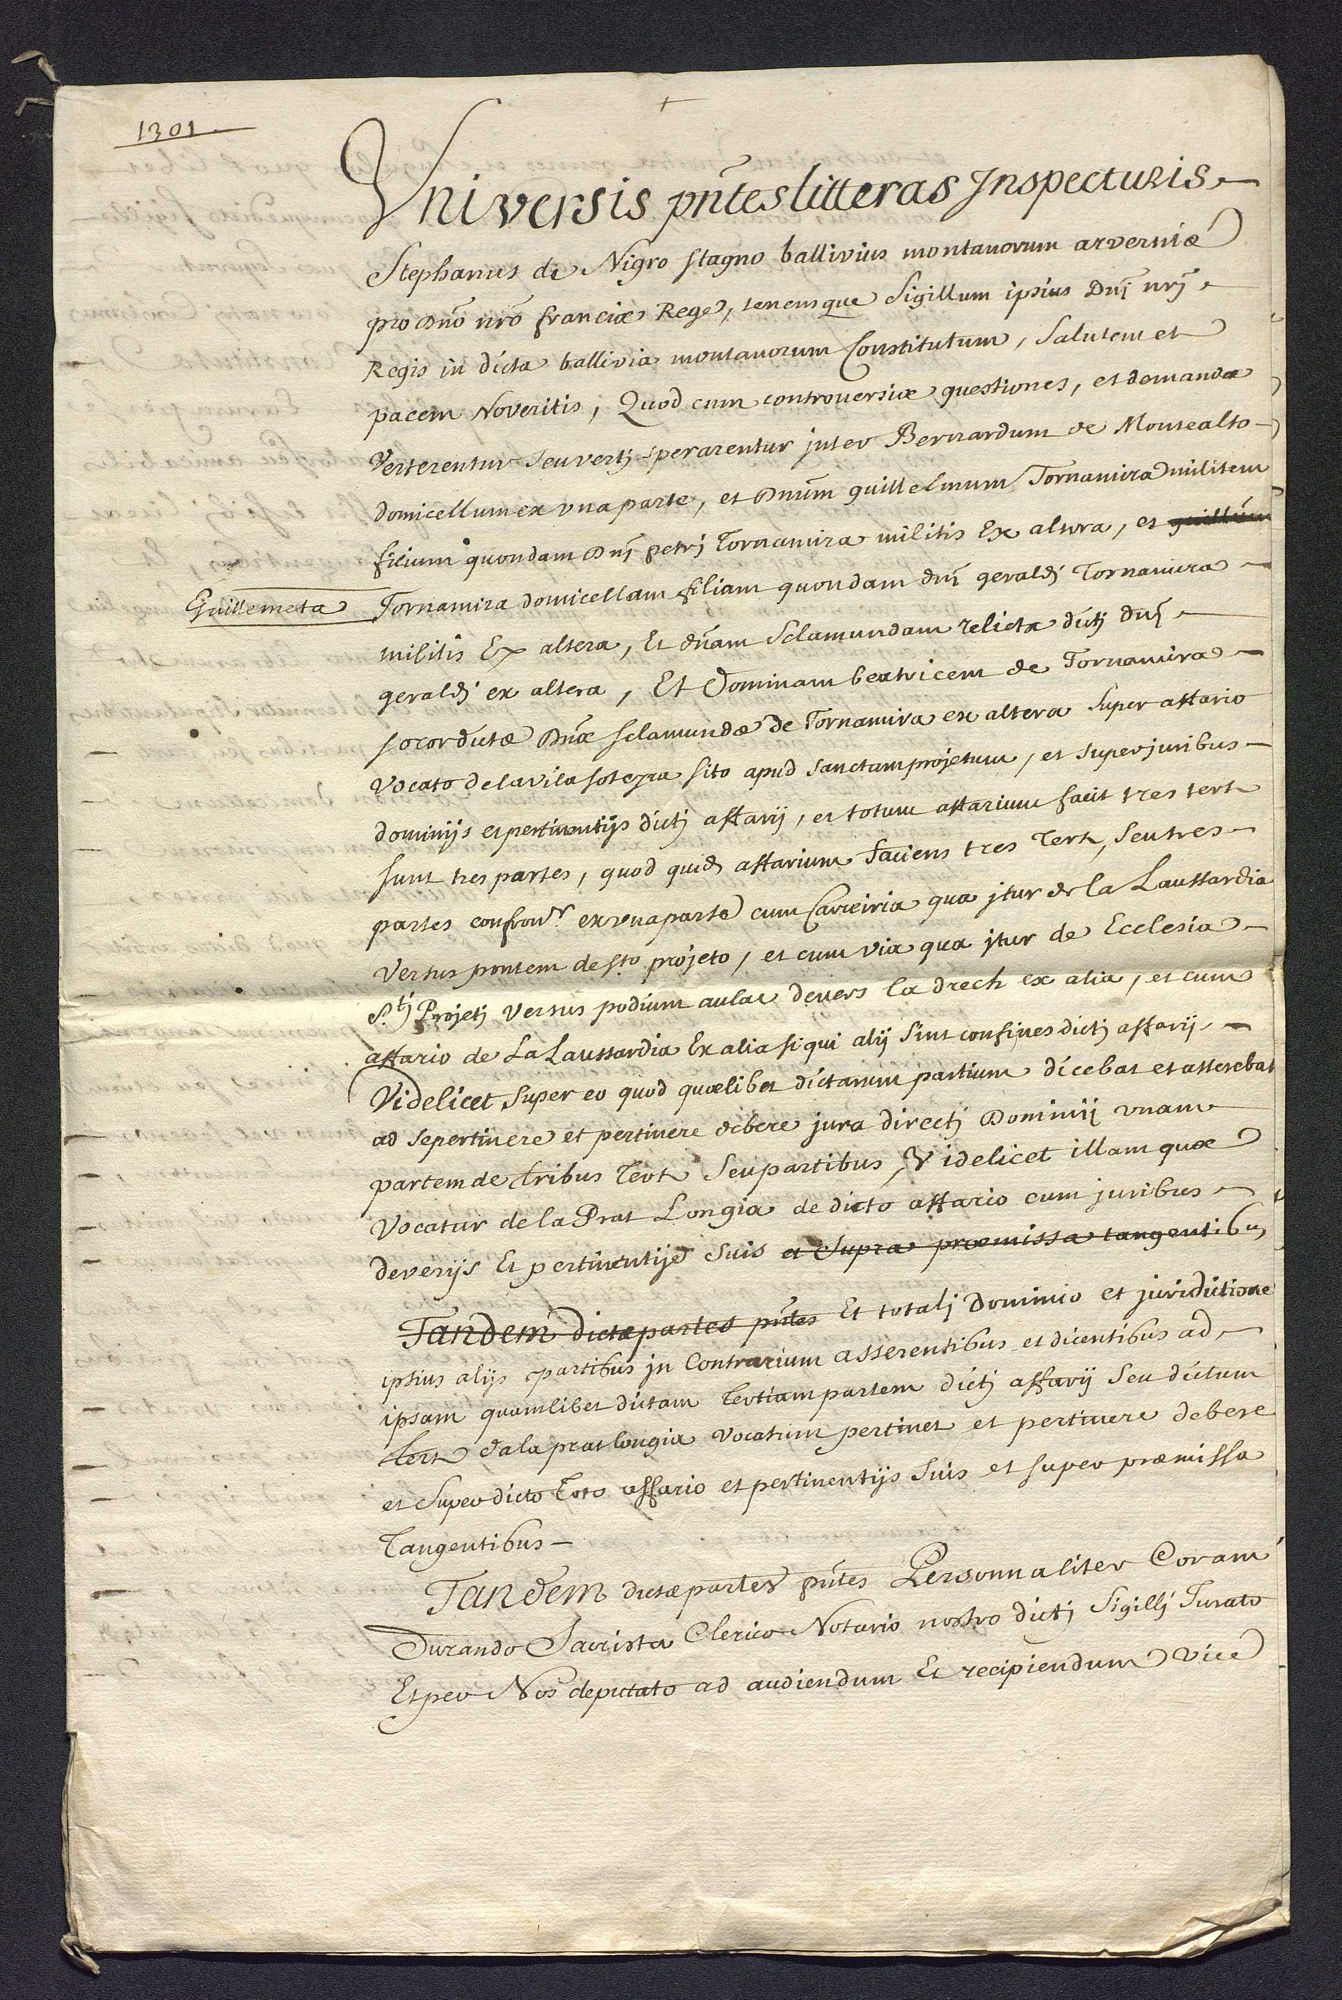 1301
Vniversis pñtes litteras Jnspecturis
Stephanus de Nigro stagno ballivius montanorum arverniæ
pro dño nrõ franciæ Rege, tenensque Sigillum ipsius Dnj nrj
Regis in dicta ballivia montanorum Constitutum, Salutem et
pacem Noveritis, Quod cum controversiæ questiones, et demandæ
Verterentur seu vertj sperarentur jnter Bernardum de Montealto
domicellum ex vna parte, et Dnum guillelmum Tornamira militem
filium quondam Dnj petrj Tornamira militis Ex altera, et guillům
Guillemeta Tornamira domicellam filiam quondam dnj geraldj Tornamira
militis Ex altera, Et dnam Sclamundam relictæ dictj dnj
geraldj ex altera, Et Dominam beatricem de Tornamira
soror dictæ Dnæ sclamundæ de Tornamira ex altera Super affario
Vocato de la vila soteyra sito apud Sanctam projetum, et super juribus
dominijs et pertinentijs dictj affarij, et totum affarium facit tres tert
sunt tres partes, quod quid affarium faciens tres Tert, seu tres
partes confrontr ex vna parte cum Carreiria qua jtur de la Laussardia
Versus pontem de sto projeto, et cum via qua jtur de Ecclesia
Stj Projetj versus podium aulac devers la drech ex alia, et cum
affario de La Laussardia Ex alia si qui alij Sint confines dictj affarij
Videlicet super eo quod quælibet dictarum partium dicebat et asserebat
ad se pertinere et pertinere debere jura directj Dominij vnam
partem de tribus Tert Seu partibus, Videlicet illam quæ
Vocatur de la Prat Longia de dicto affario cum juribus
deverijs Et pertinentijs suis et Supra præmissa tangentibus
Tandem dictæ partes pñtes Et totalj Dominio et juridictione
ipsius alijs partibus jn Contrarium asserentibus et dicentibus ad
ipsam quamlibet dictam tertiam partem dictj affarij Seu dictum
tert de la prat longia vocatum pertinet et pertinere debere
et Super dicto Toto affario et pertinentijs Suis et super præmissa
Tangentibus
Tandem dictæ partes pñtes Personnaliter Coram
Durando Sacrista Clerico Notario nostro dictj Sigillj Jurato
Et per Nos deputato ad audiendum Et recipiendum vice